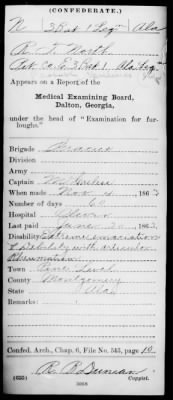 (CONFEDERATE.)
N 3 Bat 1 Legn Ala
R. T. North
Pvt Co. E. 3 Bat 1 Ala Legn
Appears on a Report of the
Medical Examining Board,
Dalton, Georgia,
under the head of "Examination for fur-
loughs."
Brigade Gracie's
Division
Army
Captain
When made Nov 4, 1863
Number of days 60
Hospital
Last paid June 30, 1863
Disability Extreme emaciation
& debility with articular
Rheumatism
Town Pine Level
County Montgomery
State Ala
Remarks:
Confed. Arch., Chap. 6, File No. 543, page 19
R. R. Duncan
(635) Copyist.